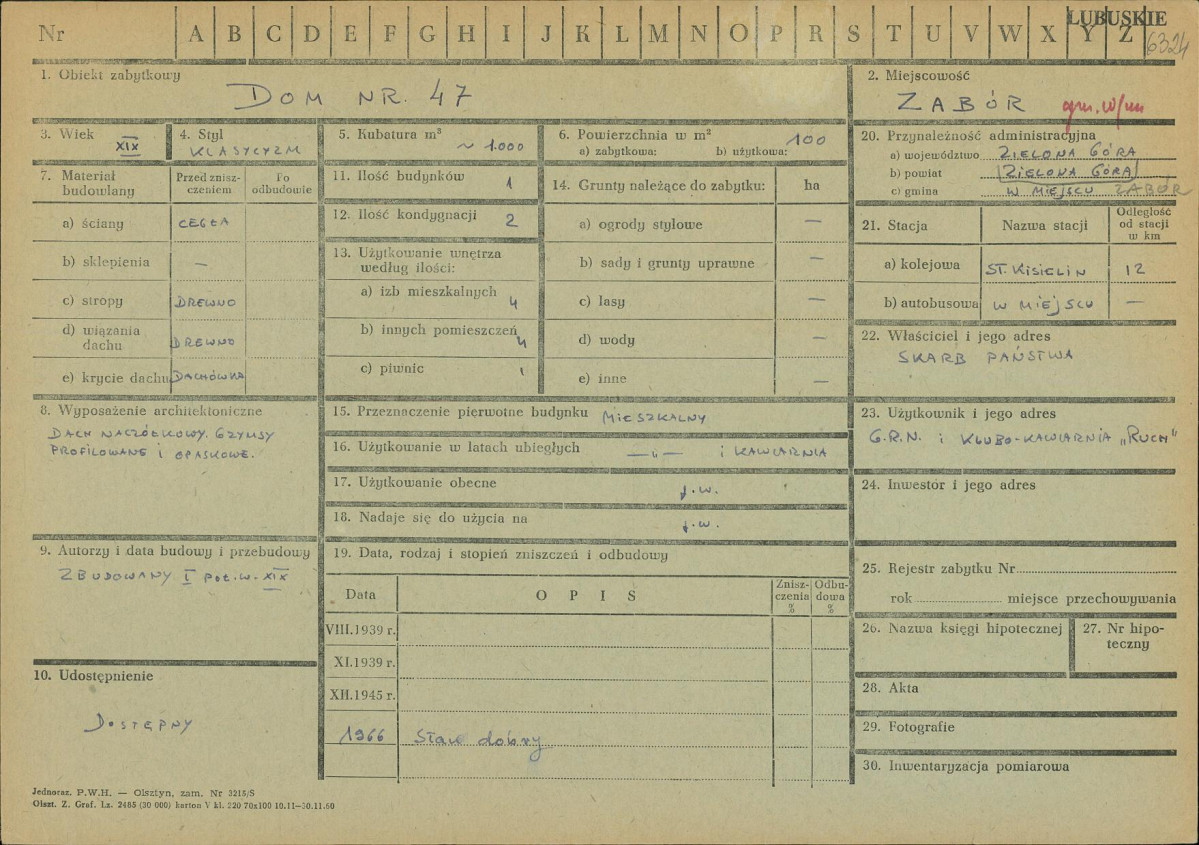 Nr A B C D E F G H I J K L M N O P R S T U V W X Y Z
LUBUSKIE
6324
1. Obiekt zabytkowy
DOM NR. 47
2. Miejscowość
ZABÓR gm. w/m
3. Wiek
XIX
4. Styl
KLASYCYZM
5. Kubatura m³
~ 1.000
6. Powierzchnia w m²
a) zabytkowa: b) użytkowa: 100
7. Materiał budowlany
Przed zniszczeniem
Po odbudowie
a) ściany CEGŁA
b) sklepienia —
c) stropy DREWNO
d) wiązania dachu DREWNO
e) krycie dachu DACHÓWKA
8. Wyposażenie architektoniczne
DACH NACZÓŁKOWY. GZYMSY
PROFILOWANE I OPASKOWE.
9. Autorzy i data budowy i przebudowy
ZBUDOWANY I POŁ. W. XIX
10. Udostępnienie
DOSTĘPNY
11. Ilość budynków 1
12. Ilość kondygnacji 2
13. Użytkowanie wnętrza
według ilości:
a) izb mieszkalnych 4
b) innych pomieszczeń 4
c) piwnic 1
14. Grunty należące do zabytku: ha
a) ogrody stylowe —
b) sady i grunty uprawne —
c) lasy —
d) wody —
e) inne —
15. Przeznaczenie pierwotne budynku MIESZKALNY
16. Użytkowanie w latach ubiegłych —„— i KAWIARNIA
17. Użytkowanie obecne j.w.
18. Nadaje się do użycia na j.w.
19. Data, rodzaj i stopień zniszczeń i odbudowy
Data OPIS Zniszczenia % Odbudowa %
VIII.1939 r.
XI.1939 r.
XII.1945 r.
1966 Stan dobry
20. Przynależność administracyjna
a) województwo ZIELONA GÓRA
b) powiat ZIELONA GÓRA
c) gmina W MIEJSCU ZABÓR
21. Stacja Nazwa stacji Odległość od stacji w km
a) kolejowa ST. KISIELIN 12
b) autobusowa W MIEJSCU —
22. Właściciel i jego adres
SKARB PAŃSTWA
23. Użytkownik i jego adres
G.R.N. i KLUBO-KAWIARNIA „RUCH"
24. Inwestor i jego adres
25. Rejestr zabytku Nr
rok miejsce przechowywania
26. Nazwa księgi hipotecznej
27. Nr hipoteczny
28. Akta
29. Fotografie
30. Inwentaryzacja pomiarowa
Jednoraz. P.W.H. — Olsztyn, zam. Nr 3215/S
Olszt. Z. Graf. Lz. 2485 (30 000) karton V kl. 220 70x100 10.11—30.11.60